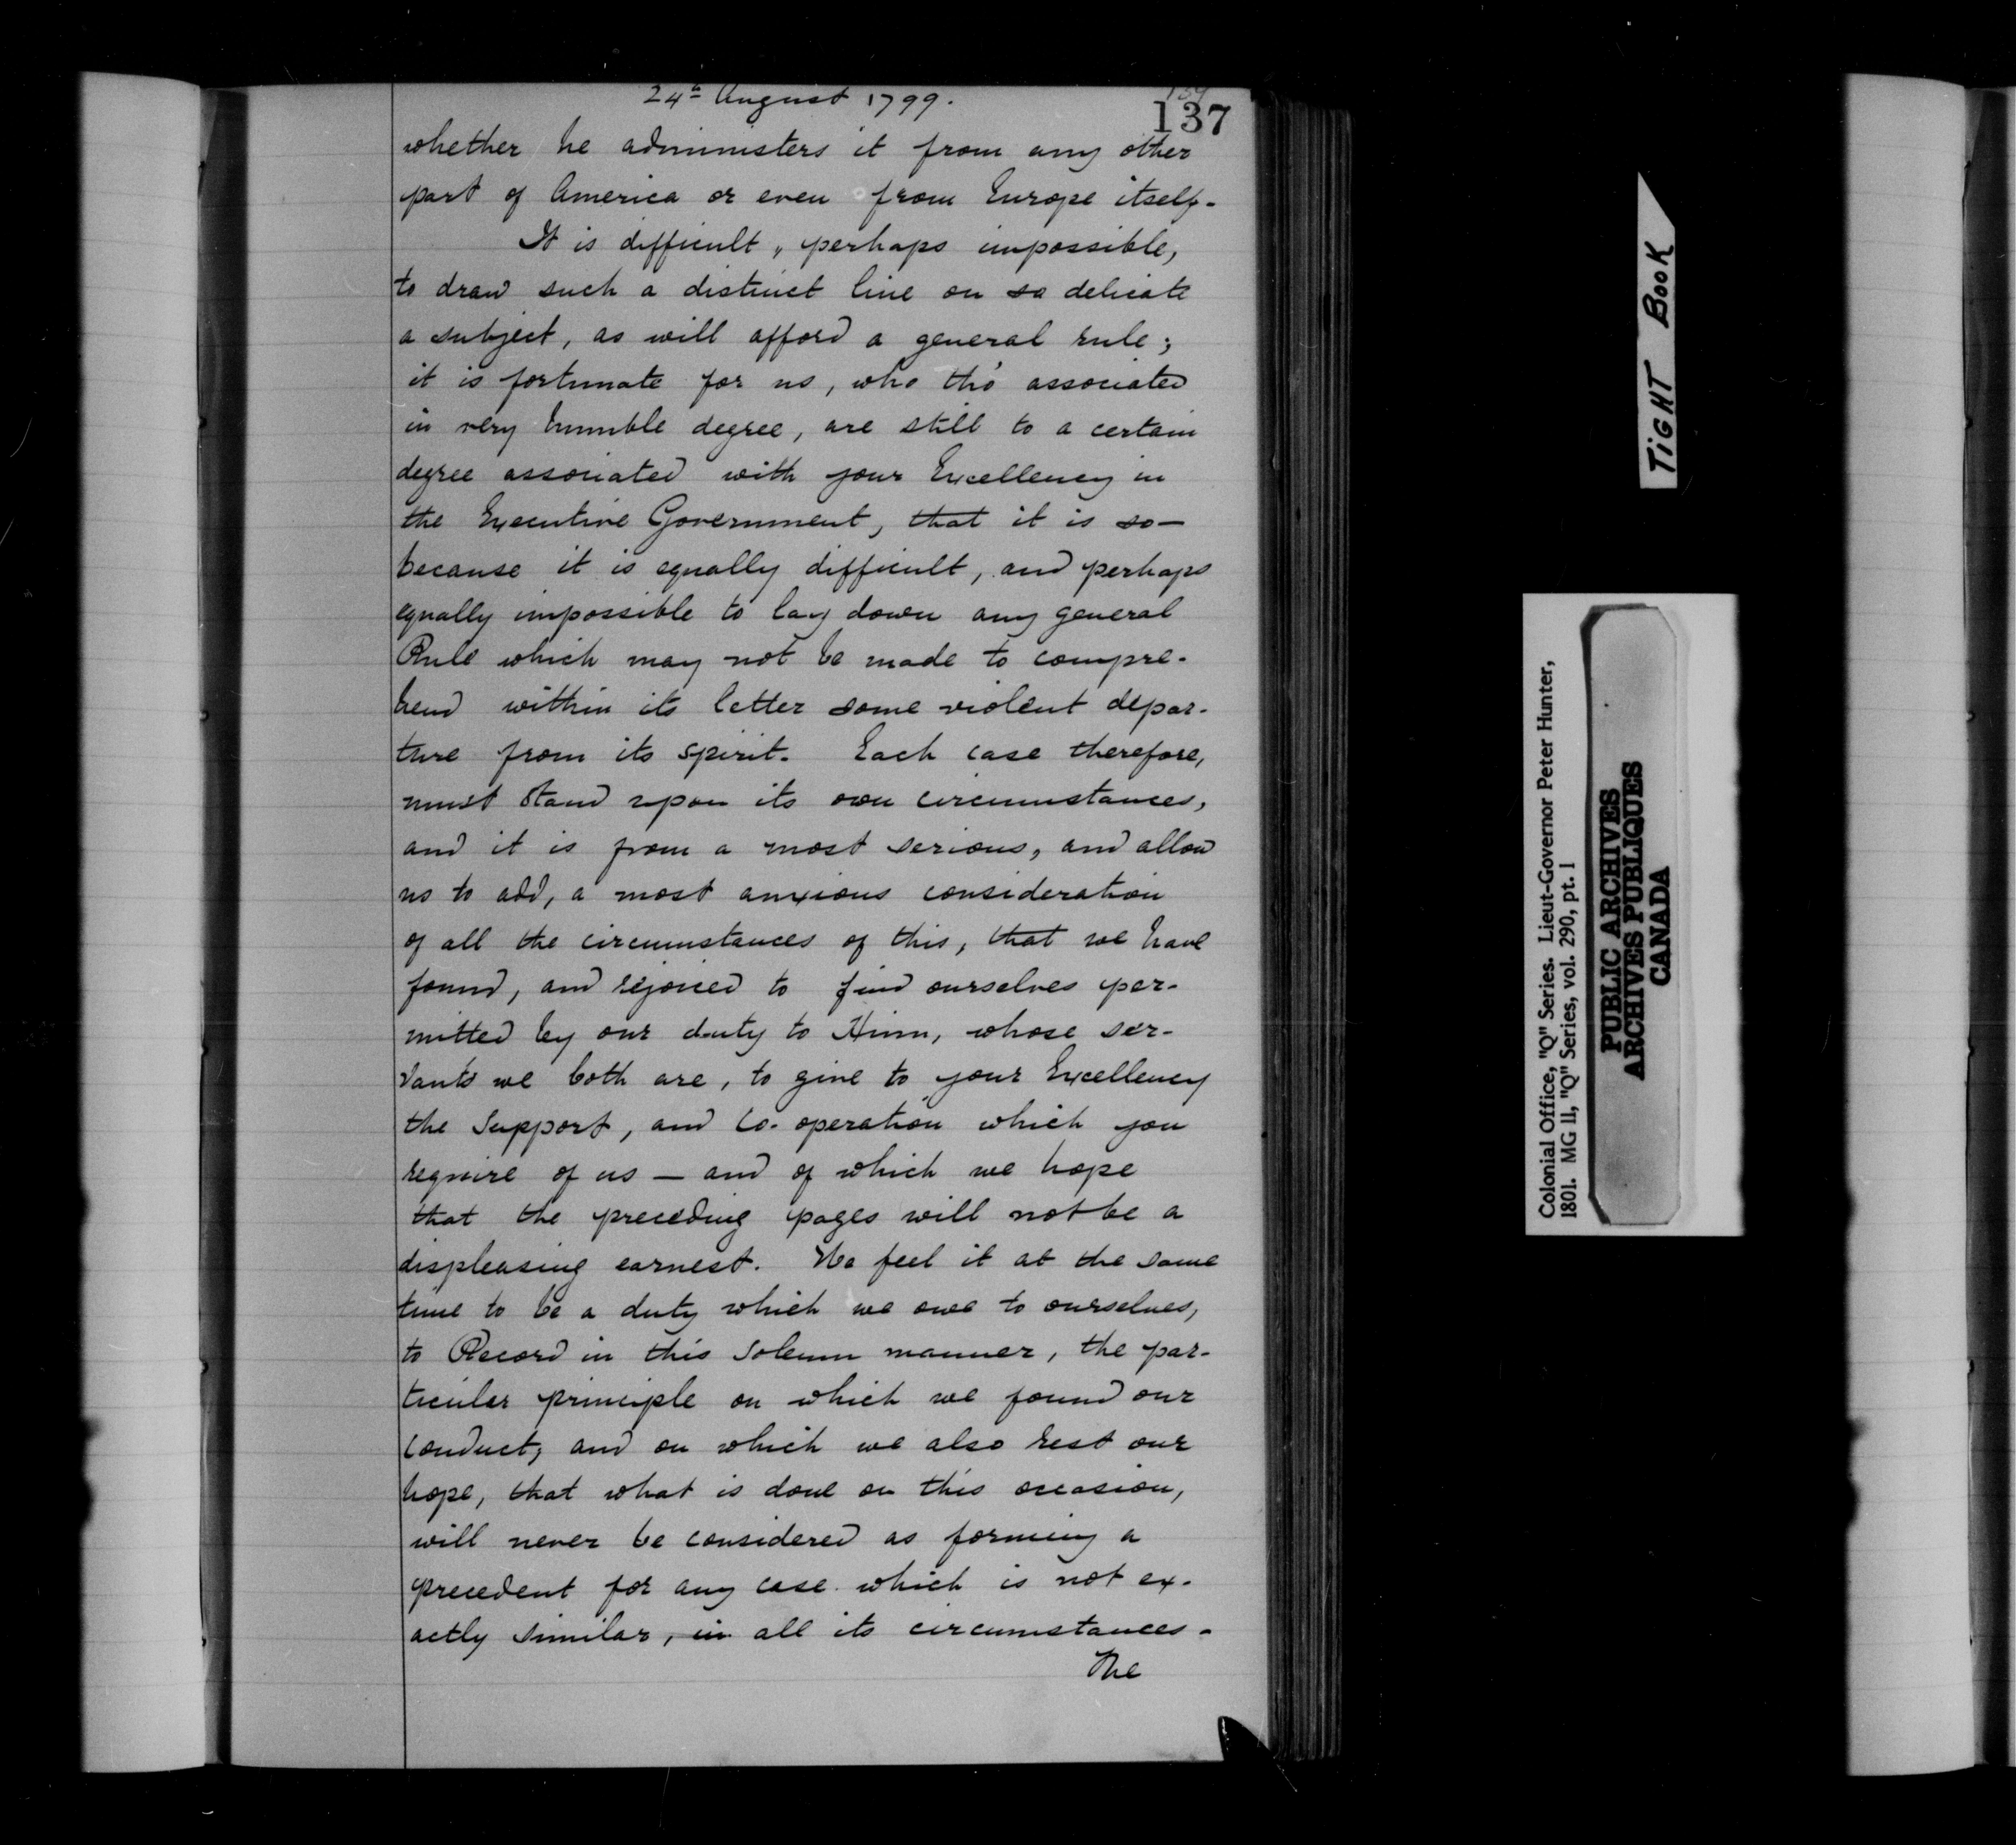 24th August 1799.
137
whether he administers it from any other
part of America or even from Europe itself.
It is difficult, perhaps impossible,
to draw such a distinct line on so delicate
a subject, as will afford a general rule;
it is fortunate for us, who tho' associated
in very humble degree, are still to a certain
degree associated with your Excellency in
the Executive Government, that it is so—
because it is equally difficult, and perhaps
equally impossible to lay down any general
Rule which may not be made to compre-
hend within its letter some violent depar-
ture from its spirit. Each case therefore,
must stand upon its own circumstances,
and it is from a most serious, and allow
us to add, a most anxious consideration
of all the circumstances of this, that we have
found, and rejoiced to find ourselves per-
mitted by our duty to Him, whose ser-
vants we both are, to give to your Excellency
the support, and Co-operation which you
require of us — and of which we hope
that the preceding pages will not be a
displeasing earnest. We feel it at the same
time to be a duty which we owe to ourselves,
to Record in this solemn manner, the par-
ticular principle on which we found our
conduct; and on which we also rest our
hope, that what is done on this occasion,
will never be considered as forming a
precedent for any case which is not ex-
actly similar, in all its circumstances.
The
TIGHT BOOK
Colonial Office, "Q" Series. Lieut-Governor Peter Hunter,
1801. MG 11, "Q" Series, vol. 290, pt. 1
PUBLIC ARCHIVES
ARCHIVES PUBLIQUES
CANADA